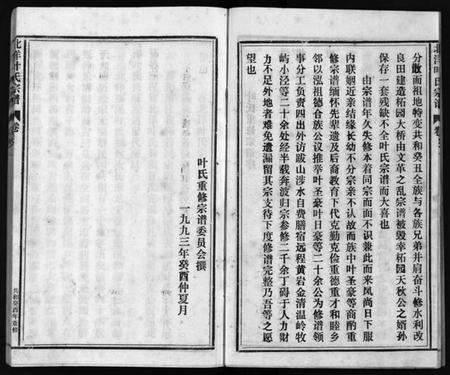 分散而祖地特变共和癸丑全族与各族兄弟并肩奋斗修水利改
良田建造柘园大桥由文革之乱宗谱被毁幸柘园天秋公之婿孙
保存一套残缺不全叶氏宗谱而大喜也
由宗谱年久失修本着同宗而面不识兼此而来风尚日下服
内联姻近亲结缘长幼不分宗亲不认故而族中叶圣豪等商酌重
修宗谱缅怀先辈遗及后裔教育下代克勤克俭重德重才和睦乡
邻以泓祖德合族公议推举叶圣豪叶日豪等二十余公为修谱领
事分工负责四出外访跋山涉水自费膳宿远程黄岩金清温岭牧
屿小泾等二十余处经半载奔波归宗参修二千余丁碍于人力财
力不足外地者难免遗漏留其宗支待下度修谱完整乃吾等之愿
望也
叶氏重修宗谱委员会撰
一九九三年癸酉仲夏月
北洋叶氏宗谱
卷
共和癸酉年重修